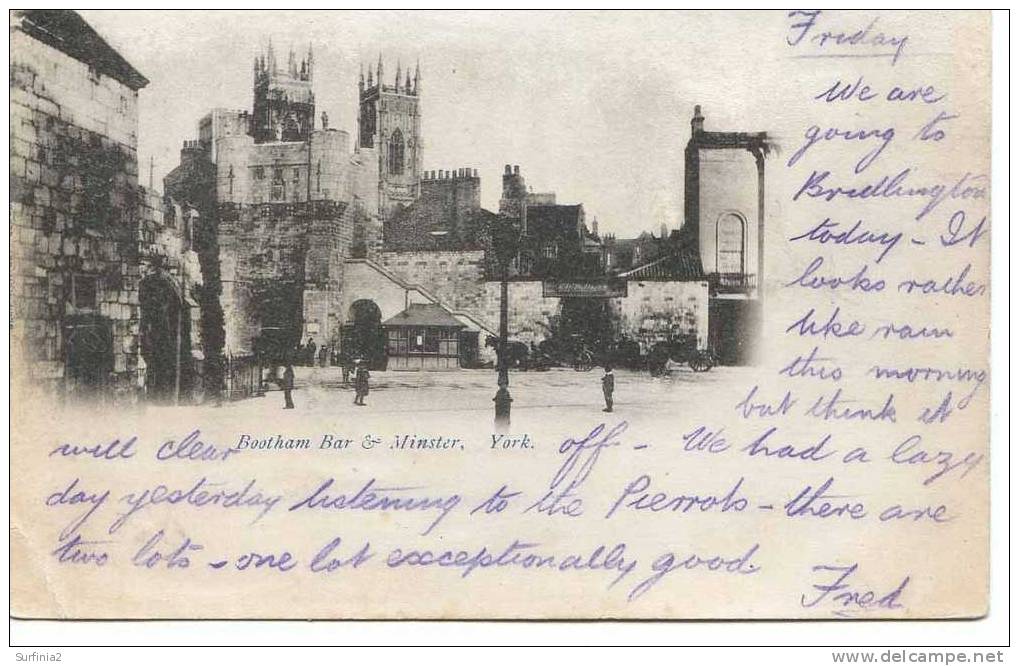 Friday
We are
going to
Bridlington
today - It
looks rather
like rain
this morning
but think it
will clear off - We had a lazy
Bootham Bar & Minster, York.
day yesterday listening to the Pierrots - there are
two lots - one lot exceptionally good.
Fred
Surfinia2
www.delcampe.net